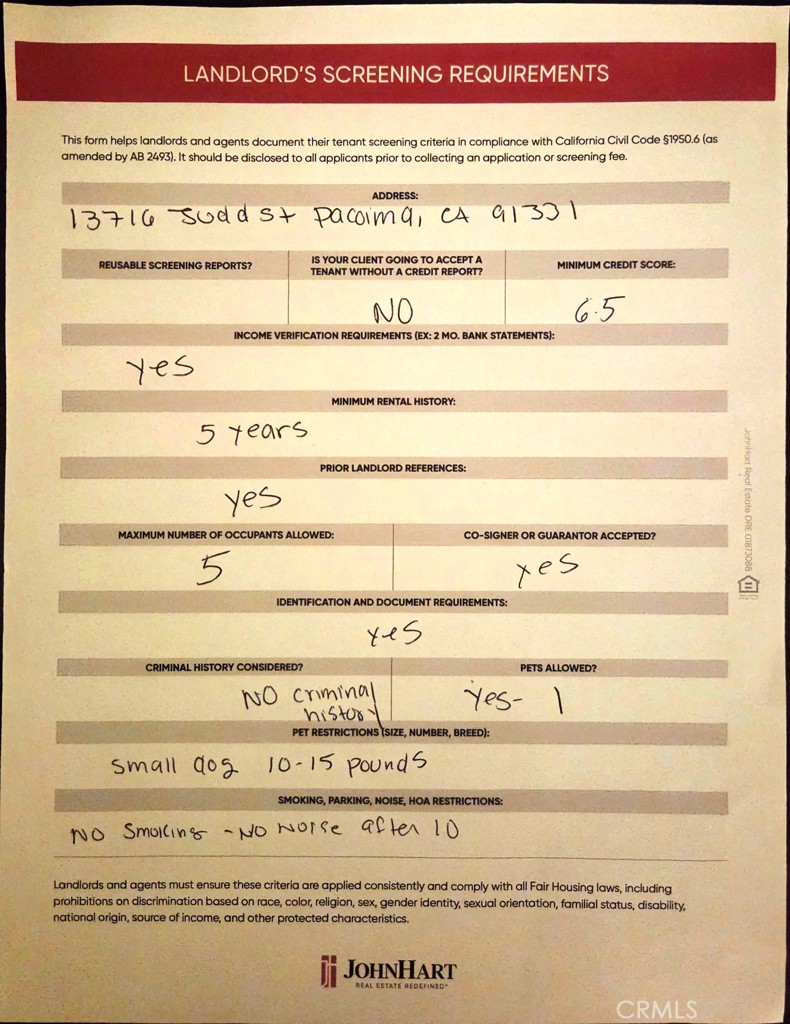 LANDLORD'S SCREENING REQUIREMENTS
This form helps landlords and agents document their tenant screening criteria in compliance with California Civil Code §1950.6 (as
amended by AB 2493). It should be disclosed to all applicants prior to collecting an application or screening fee.
ADDRESS:
13716 Judd St Pacoima, CA 91331
REUSABLE SCREENING REPORTS?
IS YOUR CLIENT GOING TO ACCEPT A
TENANT WITHOUT A CREDIT REPORT?
MINIMUM CREDIT SCORE:
NO
6.5
INCOME VERIFICATION REQUIREMENTS (EX: 2 MO. BANK STATEMENTS):
yes
MINIMUM RENTAL HISTORY:
5 years
PRIOR LANDLORD REFERENCES:
yes
MAXIMUM NUMBER OF OCCUPANTS ALLOWED:
CO-SIGNER OR GUARANTOR ACCEPTED?
5
yes
IDENTIFICATION AND DOCUMENT REQUIREMENTS:
yes
CRIMINAL HISTORY CONSIDERED?
PETS ALLOWED?
NO criminal
history
Yes- 1
PET RESTRICTIONS (SIZE, NUMBER, BREED):
small dog 10-15 pounds
SMOKING, PARKING, NOISE, HOA RESTRICTIONS:
NO Smoking - NO Noise after 10
Landlords and agents must ensure these criteria are applied consistently and comply with all Fair Housing laws, including
prohibitions on discrimination based on race, color, religion, sex, gender identity, sexual orientation, familial status, disability,
national origin, source of income, and other protected characteristics.
JOHNHART
REAL ESTATE REDEFINED
JohnHart Real Estate DRE 01873088
CRMLS